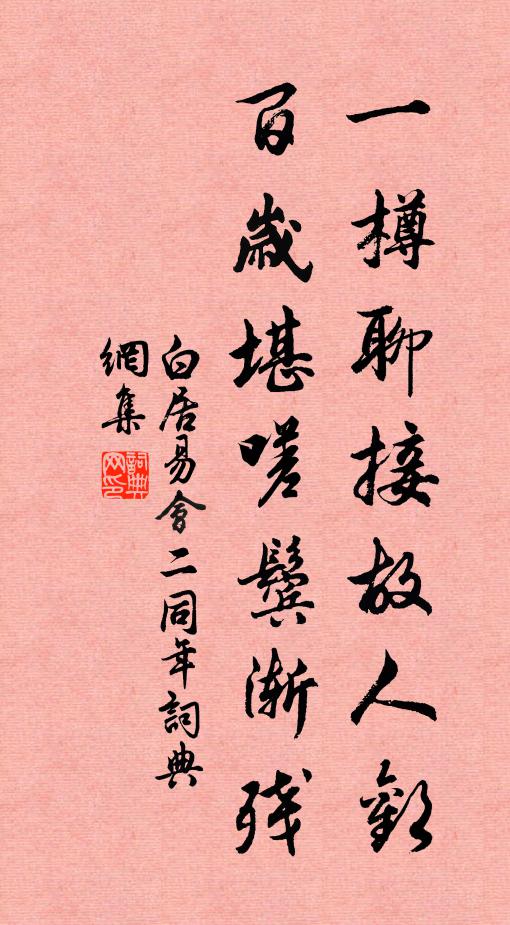 一樽聊接故人歡
百歲堪嗟鬢漸残
白居易會二同年詞典
網集
詞典网印